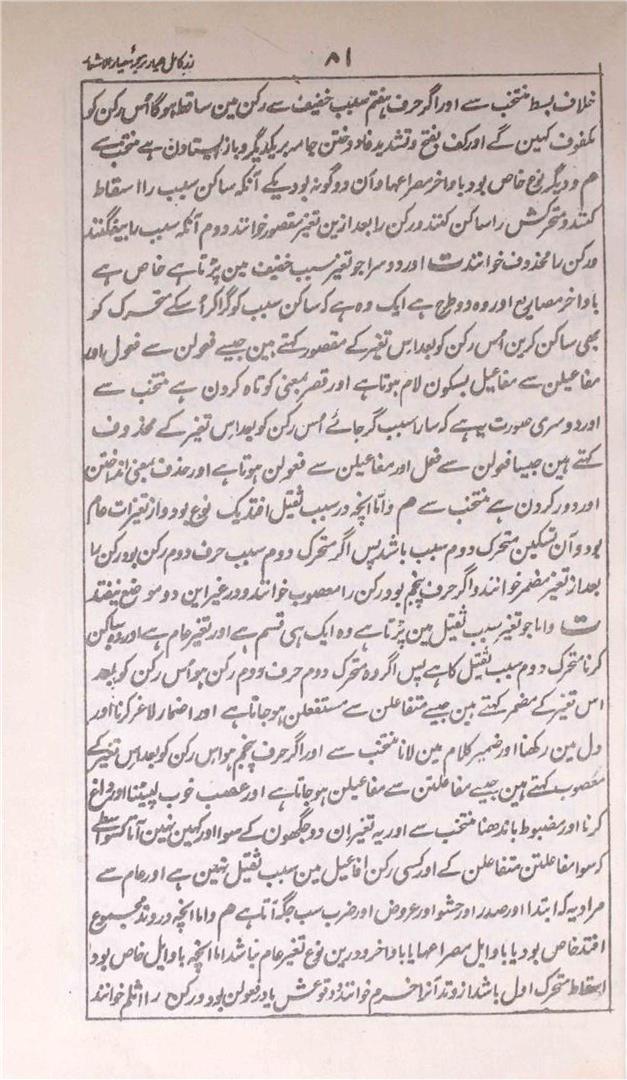 زر کامل عیار ترجمہ معیار الاشعار
۸۱
خلاف بسط منتخب سے اور اگر حرف ہفتم سبب خفیف سے رکن مین ساقط ہوگا اُس رکن کو
مکفوف کہین گے اور کف بفتح و تشدید فا دوختن جامہ بر یکدیگر و باز ایستادن ہے منتخب سے
م و دیگر نوع خاص بود باواخر مصراعہا و آن دو گونہ بود یکے آنکہ ساکن سبب را اسقاط
کنند و متحرکش را ساکن کنند و رکن را بعد ازین تغیر مقصور خوانند دوم آنکہ سبب را بیفگنند
و رکن را محذوف خوانند ت اور دوسرا جو تغیر سبب خفیف مین پڑتا ہے خاص ہے
باواخر مصاریع اور وہ دو طرح ہے ایک وہ ہے کہ ساکن سبب کو گرا کر اُسکے متحرک کو
بھی ساکن کرین اُس رکن کو بعد اس تغیر کے مقصور کہتے ہین جیسے فعولن سے فعول اور
مفاعیلن سے مفاعیل بسکون لام ہوتا ہے اور قصر بمعنی کوتاہ کردن ہے منتخب سے
اور دوسری صورت یہ ہے کہ سارا سبب گر جائے اُس رکن کو بعد اس تغیر کے محذوف
کہتے ہین جیسا فعولن سے فعل اور مفاعیلن سے فعولن ہوتا ہے اور حذف بمعنی انداختن
اور دور کردن ہے منتخب سے م و اما انچہ در سبب ثقیل افتد یک نوع بود و از تغیرات عام
بود و آن تسکین متحرک دوم سبب باشد پس اگر متحرک دوم سبب حرف دوم رکن بود رکن را
بعد از تغیر مضمر خوانند و اگر حرف پنجم بود رکن را معصوب خوانند و در غیر این دو موضع نیفتد
ت و اما جو تغیر سبب ثقیل مین پڑتا ہے وہ ایک ہی قسم ہے اور تغیر عام ہے اور وہ ساکن
کرنا متحرک دوم سبب ثقیل کا ہے پس اگر وہ متحرک دوم حرف دوم رکن ہو اُس رکن کو بعد
اس تغیر کے مضمر کہتے ہین جیسے متفاعلن سے مستفعلن ہو جاتا ہے اور اضمار لاغر کرنا اور
دل مین رکھنا اور ضمیر کلام مین لانا منتخب سے اور اگر حرف پنجم ہو اس رکن کو بعد اس تغیر کے
معصوب کہتے ہین جیسے مفاعلتن سے مفاعیلن ہو جاتا ہے اور عصب خوب لپیٹنا اور
کرنا اور مضبوط باندھنا منتخب سے اور یہ تغیر ان دو جگھون کے سوا اور کہین نہین آتا کسواسطے
کہ سوا مفاعلتن متفاعلن کے اور کسی رکن افاعیل مین سبب ثقیل نہین ہے اور عام سے
مراد یہ کہ ابتدا اور صدر اور حشو اور عروض اور ضرب سب جگہ آتا ہے م و اما انچہ در وتد مجموع
افتد خاص بود یا باوایل مصراعہا یا باواخر و درین نوع تغیر عام نباشد اما انچہ باوایل خاص بود
اسقاط متحرک اول باشد از وتد آنرا خرم خوانند و وقوعش یا در فعولن بود و رکن را اثلم خوانند